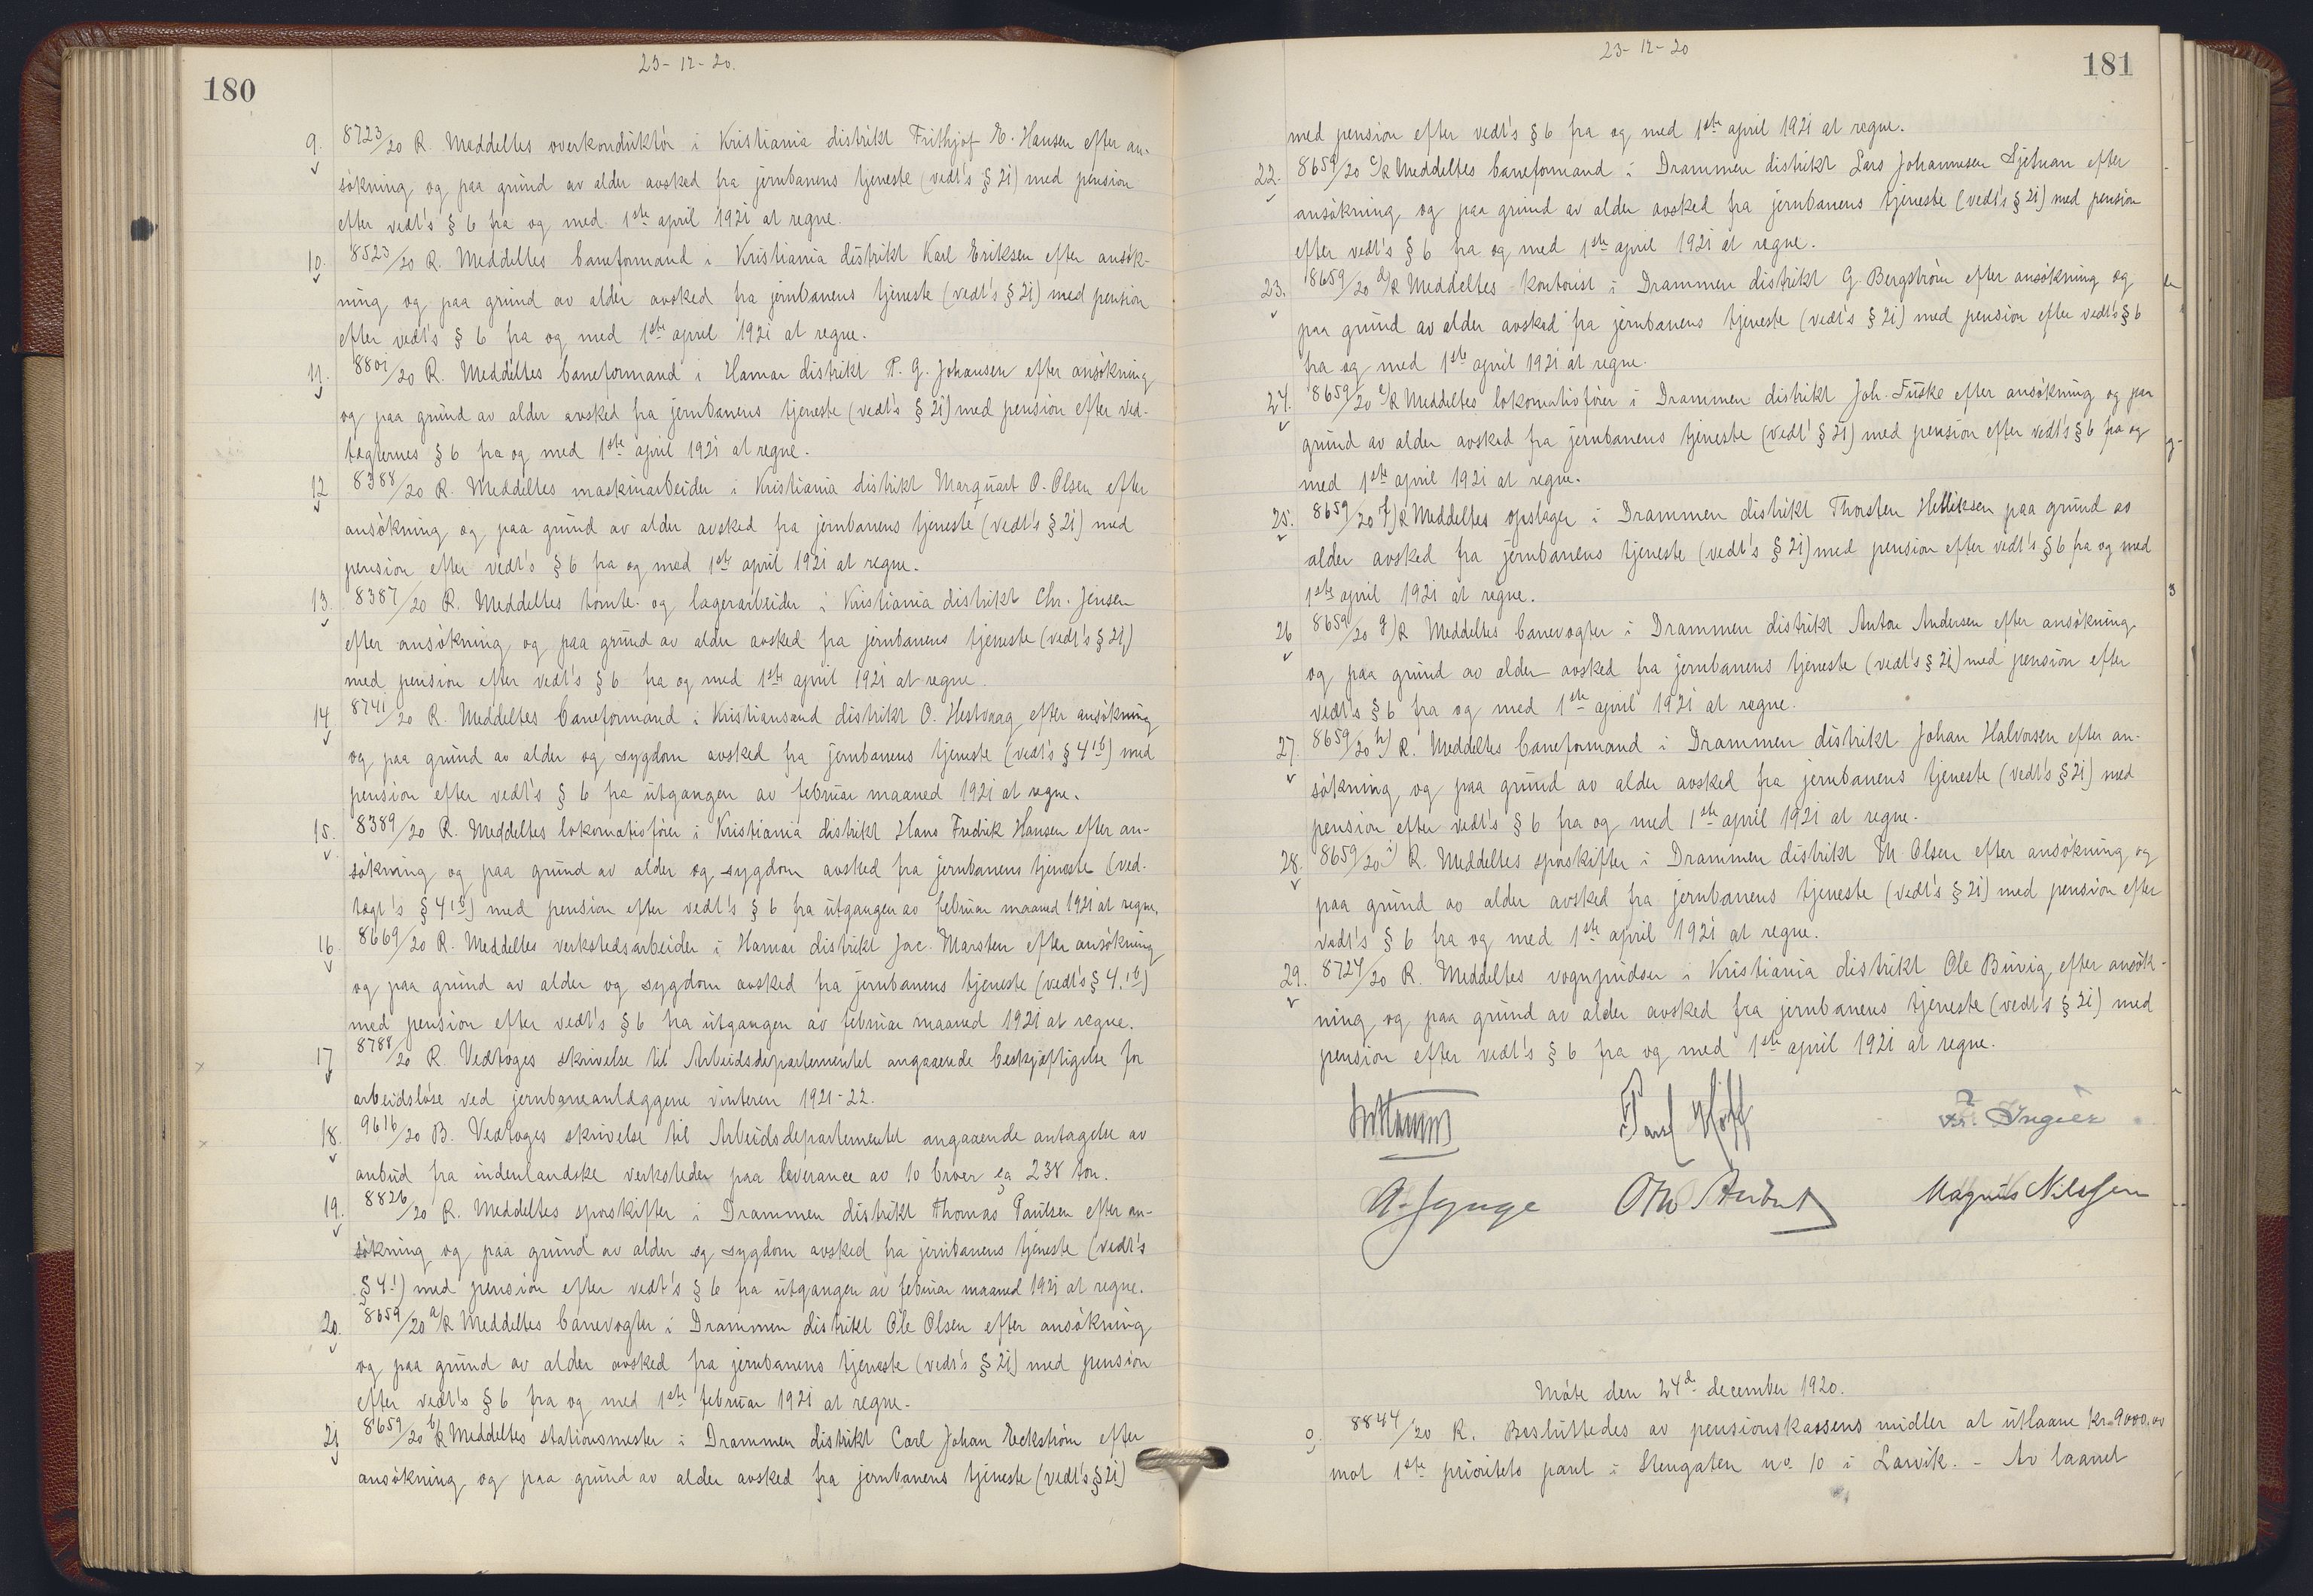 180
23-12-20.
9. 8723/20 R. Meddeltes overkonduktör i Kristiania distrikt Frithjof E. Hansen efter an-
sökning og paa grund av alder avsked fra jernbanens tjeneste (vedt's § 2i) med pension
efter vedt's § 6 fra og med 1ste april 1921 at regne.
10. 8523/20 R. Meddeltes baneformand i Kristiania distrikt Karl Eriksen efter ansök-
ning og paa grund av alder avsked fra jernbanens tjeneste (vedt's § 2i) med pension
efter vedt's § 6 fra og med 1ste april 1921 at regne.
11. 8801/20 R. Meddeltes baneformand i Hamar distrikt P. G. Johansen efter ansökning
og paa grund av alder avsked fra jernbanens tjeneste (vedt's § 2i) med pension efter ved-
tægternes § 6 fra og med 1ste april 1921 at regne.
12 8388/20 R. Meddeltes maskinarbeider i Kristiania distrikt Marquart O. Olsen efter
ansökning og paa grund av alder avsked fra jernbanens tjeneste (vedt's § 2i) med
pension efter vedt's § 6 fra og med 1ste april 1921 at regne.
13. 8387/20 R. Meddeltes tomte- og lagerarbeider i Kristiania distrikt Chr. Jensen
efter ansökning og paa grund av alder avsked fra jernbanens tjeneste (vedt's § 2i)
med pension efter vedt's § 6 fra og med 1ste april 1921 at regne.
14. 8741/20 R. Meddeltes baneformand i Kristiansand distrikt O. Hestvaag efter ansökning
og paa grund av alder og sygdom avsked fra jernbanens tjeneste (vedt's § 4 1b) med
pension efter vedt's § 6 fra utgangen av februar maaned 1921 at regne.
15. 8389/20 R. Meddeltes lokomotivförer i Kristiania distrikt Hans Fredrik Hansen efter an-
sökning og paa grund av alder og sygdom avsked fra jernbanens tjeneste (ved-
tægt's § 4 1b) med pension efter vedt's § 6 fra utgangen av februar maaned 1921 at regne.
16. 8669/20 R. Meddeltes verkstedsarbeider i Hamar distrikt Jac. Marsten efter ansökning
og paa grund av alder og sygdom avsked fra jernbanens tjeneste (vedt's § 4. 1b)
med pension efter vedt's § 6 fra utgangen av februar maaned 1921 at regne.
17 8788/20 R Vedtoges skrivelse til Arbeidsdepartementet angaaende beskjæftigelse for
arbeidslöse ved jernbaneanlæggene vinteren 1921-22.
18. 9616/20 B. Vedtoges skrivelse til Arbeidsdepartementet angaaende antagelse av
anbud fra indenlandske verksteder paa leverance av 10 broer ca 238 ton.
19. 8826/20 R. Meddeltes sporskifter i Drammen distrikt Thomas Paulsen efter an-
sökning og paa grund av alder og sygdom avsked fra jernbanens tjeneste (vedt's
§ 4 1) med pension efter vedt's § 6 fra utgangen av februar maaned 1921 at regne.
20. 8659/20 a/R Meddeltes banevogter i Drammen distrikt Ole Olsen efter ansökning
og paa grund av alder avsked fra jernbanens tjeneste (vedt's § 2i) med pension
efter vedt's § 6 fra og med 1ste februar 1921 at regne.
21 8659/20 b/R Meddeltes stationsmester i Drammen distrikt Carl Johan Eckström efter
ansökning og paa grund av alder avsked fra jernbanens tjeneste (vedt's § 2i)
23-12-20
181
med pension efter vedt's § 6 fra og med 1ste april 1921 at regne.
22. 8659/20 c/R Meddeltes baneformand i Drammen distrikt Lars Johannesen efter
ansökning og paa grund av alder avsked fra jernbanens tjeneste (vedt's § 2i) med pension
efter vedt's § 6 fra og med 1ste april 1921 at regne.
23. 8659/20 d/R Meddeltes kontorist i Drammen distrikt G. Bergström efter ansökning og
paa grund av alder avsked fra jernbanens tjeneste (vedt's § 2i) med pension efter vedt's § 6
fra og med 1ste april 1921 at regne.
24. 8659/20 e/R Meddeltes lokomotivförer i Drammen distrikt Joh. Fuske efter ansökning og paa
grund av alder avsked fra jernbanens tjeneste (vedt' § 2i) med pension efter vedt's § 6 fra og
med 1ste april 1921 at regne.
25. 8659/20 f)R Meddeltes opslager i Drammen distrikt Thorsten Helliksen paa grund av
alder avsked fra jernbanens tjeneste (vedt's § 2i) med pension efter vedt's § 6 fra og med
1ste april 1921 at regne.
26 8659/20 g)R Meddeltes banevogter i Drammen distrikt Anton Andersen efter ansökning
og paa grund av alder avsked fra jernbanens tjeneste (vedt's § 2i) med pension efter
vedt's § 6 fra og med 1ste april 1921 at regne.
27. 8659/20 h) R. Meddeltes baneformand i Drammen distrikt Johan Halvorsen efter an-
sökning og paa grund av alder avsked fra jernbanens tjeneste (vedt's § 2i) med
pension efter vedt's § 6 fra og med 1ste april 1921 at regne.
28. 8659/20 i) R. Meddeltes sporskifter i Drammen distrikt M Olsen efter ansökning og
paa grund av alder avsked fra jernbanens tjeneste (vedt's § 2i) med pension efter
vedt's § 6 fra og med 1ste april 1921 at regne.
29. 8724/20 R. Meddeltes vognpudser i Kristiania distrikt Ole Buvig efter ansök-
ning og paa grund av alder avsked fra jernbanens tjeneste (vedt's § 2i) med
pension efter vedt's § 6 fra og med 1ste april 1921 at regne.
Hoff Ingier
Magnus Nilssen
Möte den 24de december 1920.
8844/20 R. Besluttedes av pensionskassens midler at utlaane Kr. 9000,00
mot 1ste prioritets pant i Stengaten no 10 i Larvik. - Av laanet